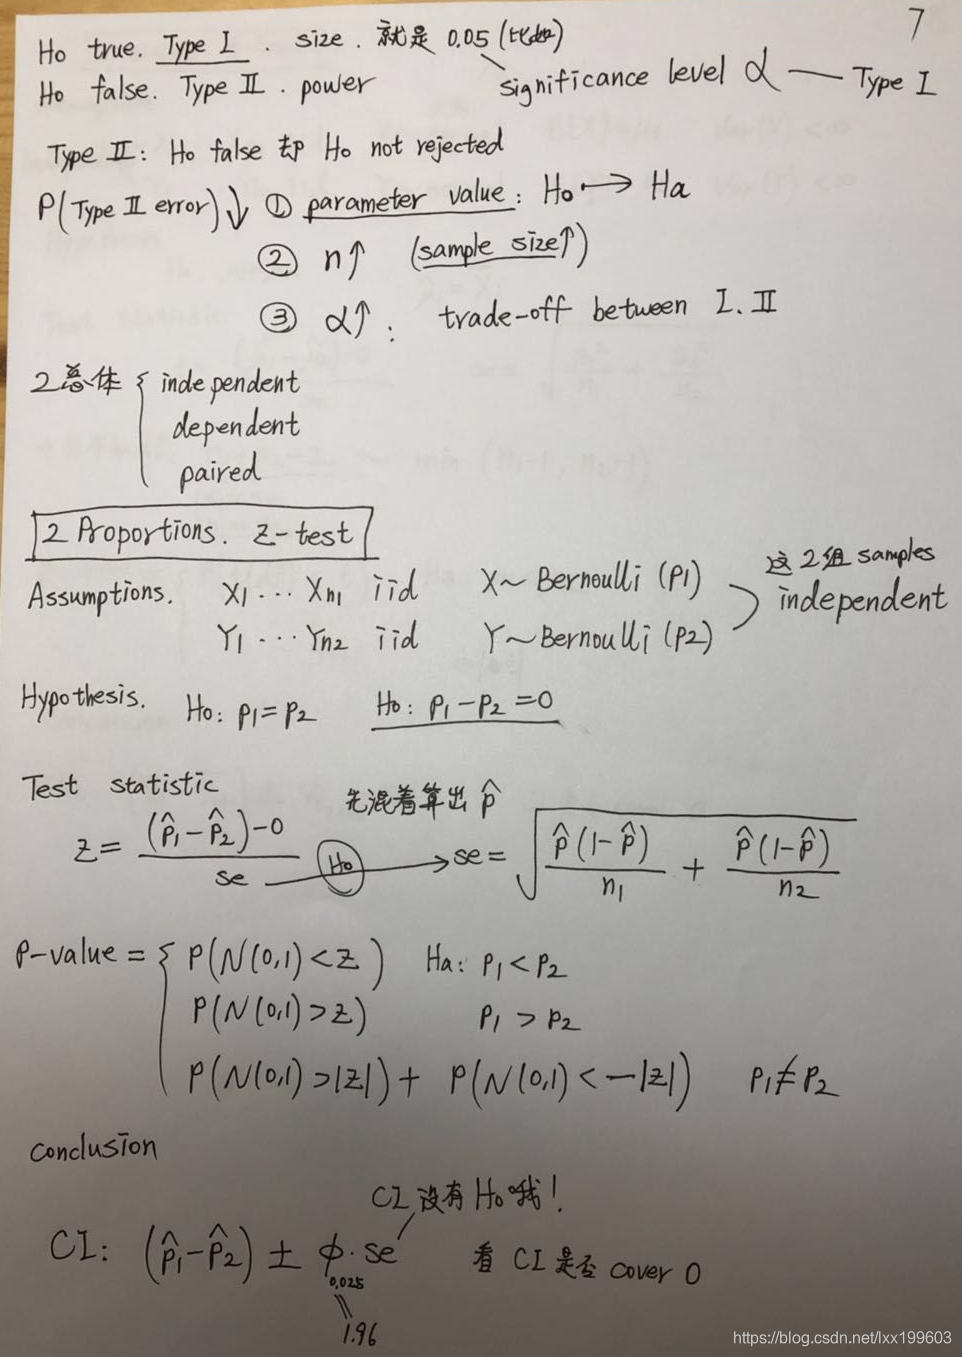 7
Ho true. Type I . size . 就是 0.05 (比如)
significance level α — Type I
Ho false. Type II . power
Type II: Ho false 却 Ho not rejected
P(Type II error)↓ ① parameter value: Ho ↦ Ha
② n↑ (sample size↑)
③ α↑: trade-off between I. II
2总体 { independent
dependent
paired
2 Proportions. Z-test
Assumptions. X1 ... Xn1 iid X~ Bernoulli (p1)
Y1 ... Yn2 iid Y~Bernoulli (p2)
这2组 samples
independent
Hypothesis. Ho: p1=p2 Ho: p1-p2=0
Test statistic 先混着算出 p̂
Z= ((p̂1-p̂2)-0)/se Ho → se= √(p̂(1-p̂)/n1 + p̂(1-p̂)/n2)
P-value = { P(N(0,1)<Z) Ha: p1<p2
P(N(0,1)>Z) p1>p2
P(N(0,1)>|Z|)+ P(N(0,1)<-|Z|) p1≠p2
Conclusion
CI 没有 Ho 哦!
CI: (p̂1-p̂2) ± ϕ0.025 · se 看 CI是否 cover 0
1.96
https://blog.csdn.net/lxx199603